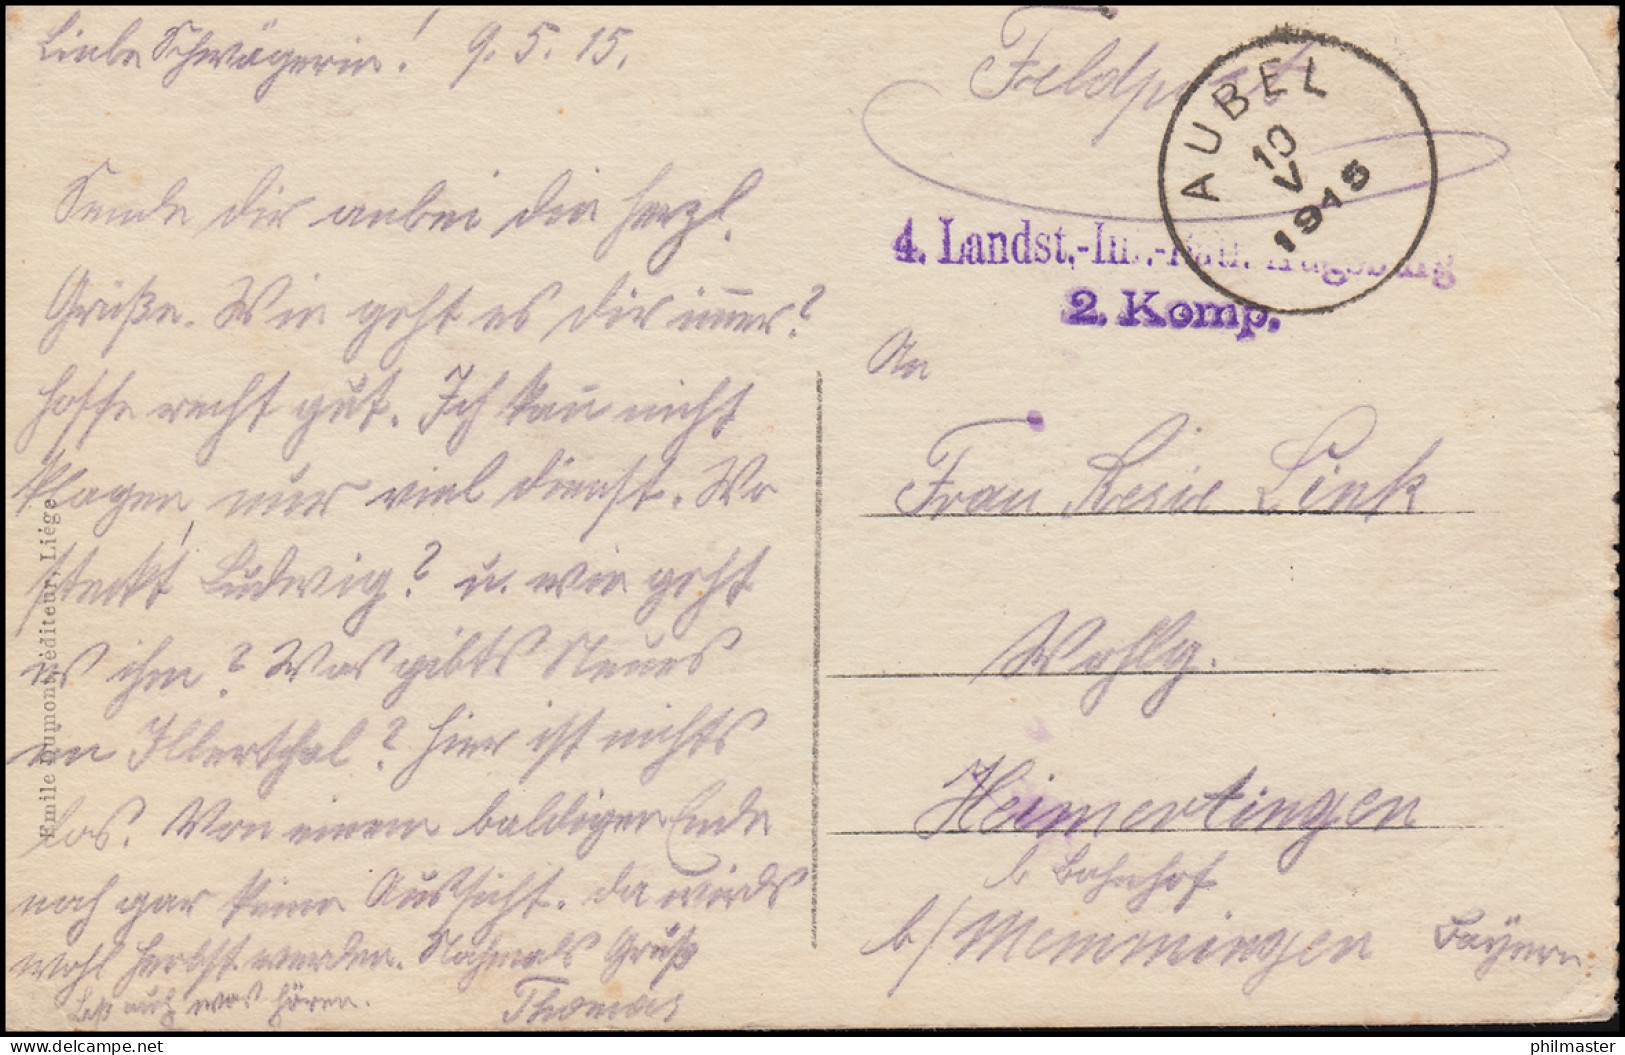 Liebe Schwägerin! 9.5.15.
Sende dir anbei die herzl.
Grüße. Wie geht es dir im̅er?
hoffe recht gut. Ich kan̅ nicht
klagen, nur viel dienst. Wo
steckt Ludwig? u. wie geht
es ihm? Was gibts Neues
im Illerthal? hier ist nichts
los. Von einem baldigen Ende
noch gar keine Aussicht. da wirds
wohl herbst werden. Nochmals Gruß
Thomas
Laß auch was hören.
Emile Dumont, éditeur, Liége
Feldpost
AUBEL
10
V
1915
4. Landst.-Inf.-Batl. Augsburg
2. Komp.
An
Frau Resie Link
Wohlg.
Heimertingen
b. Bahnhof
b/Memmingen Bayern
philmaster
delcampe.net